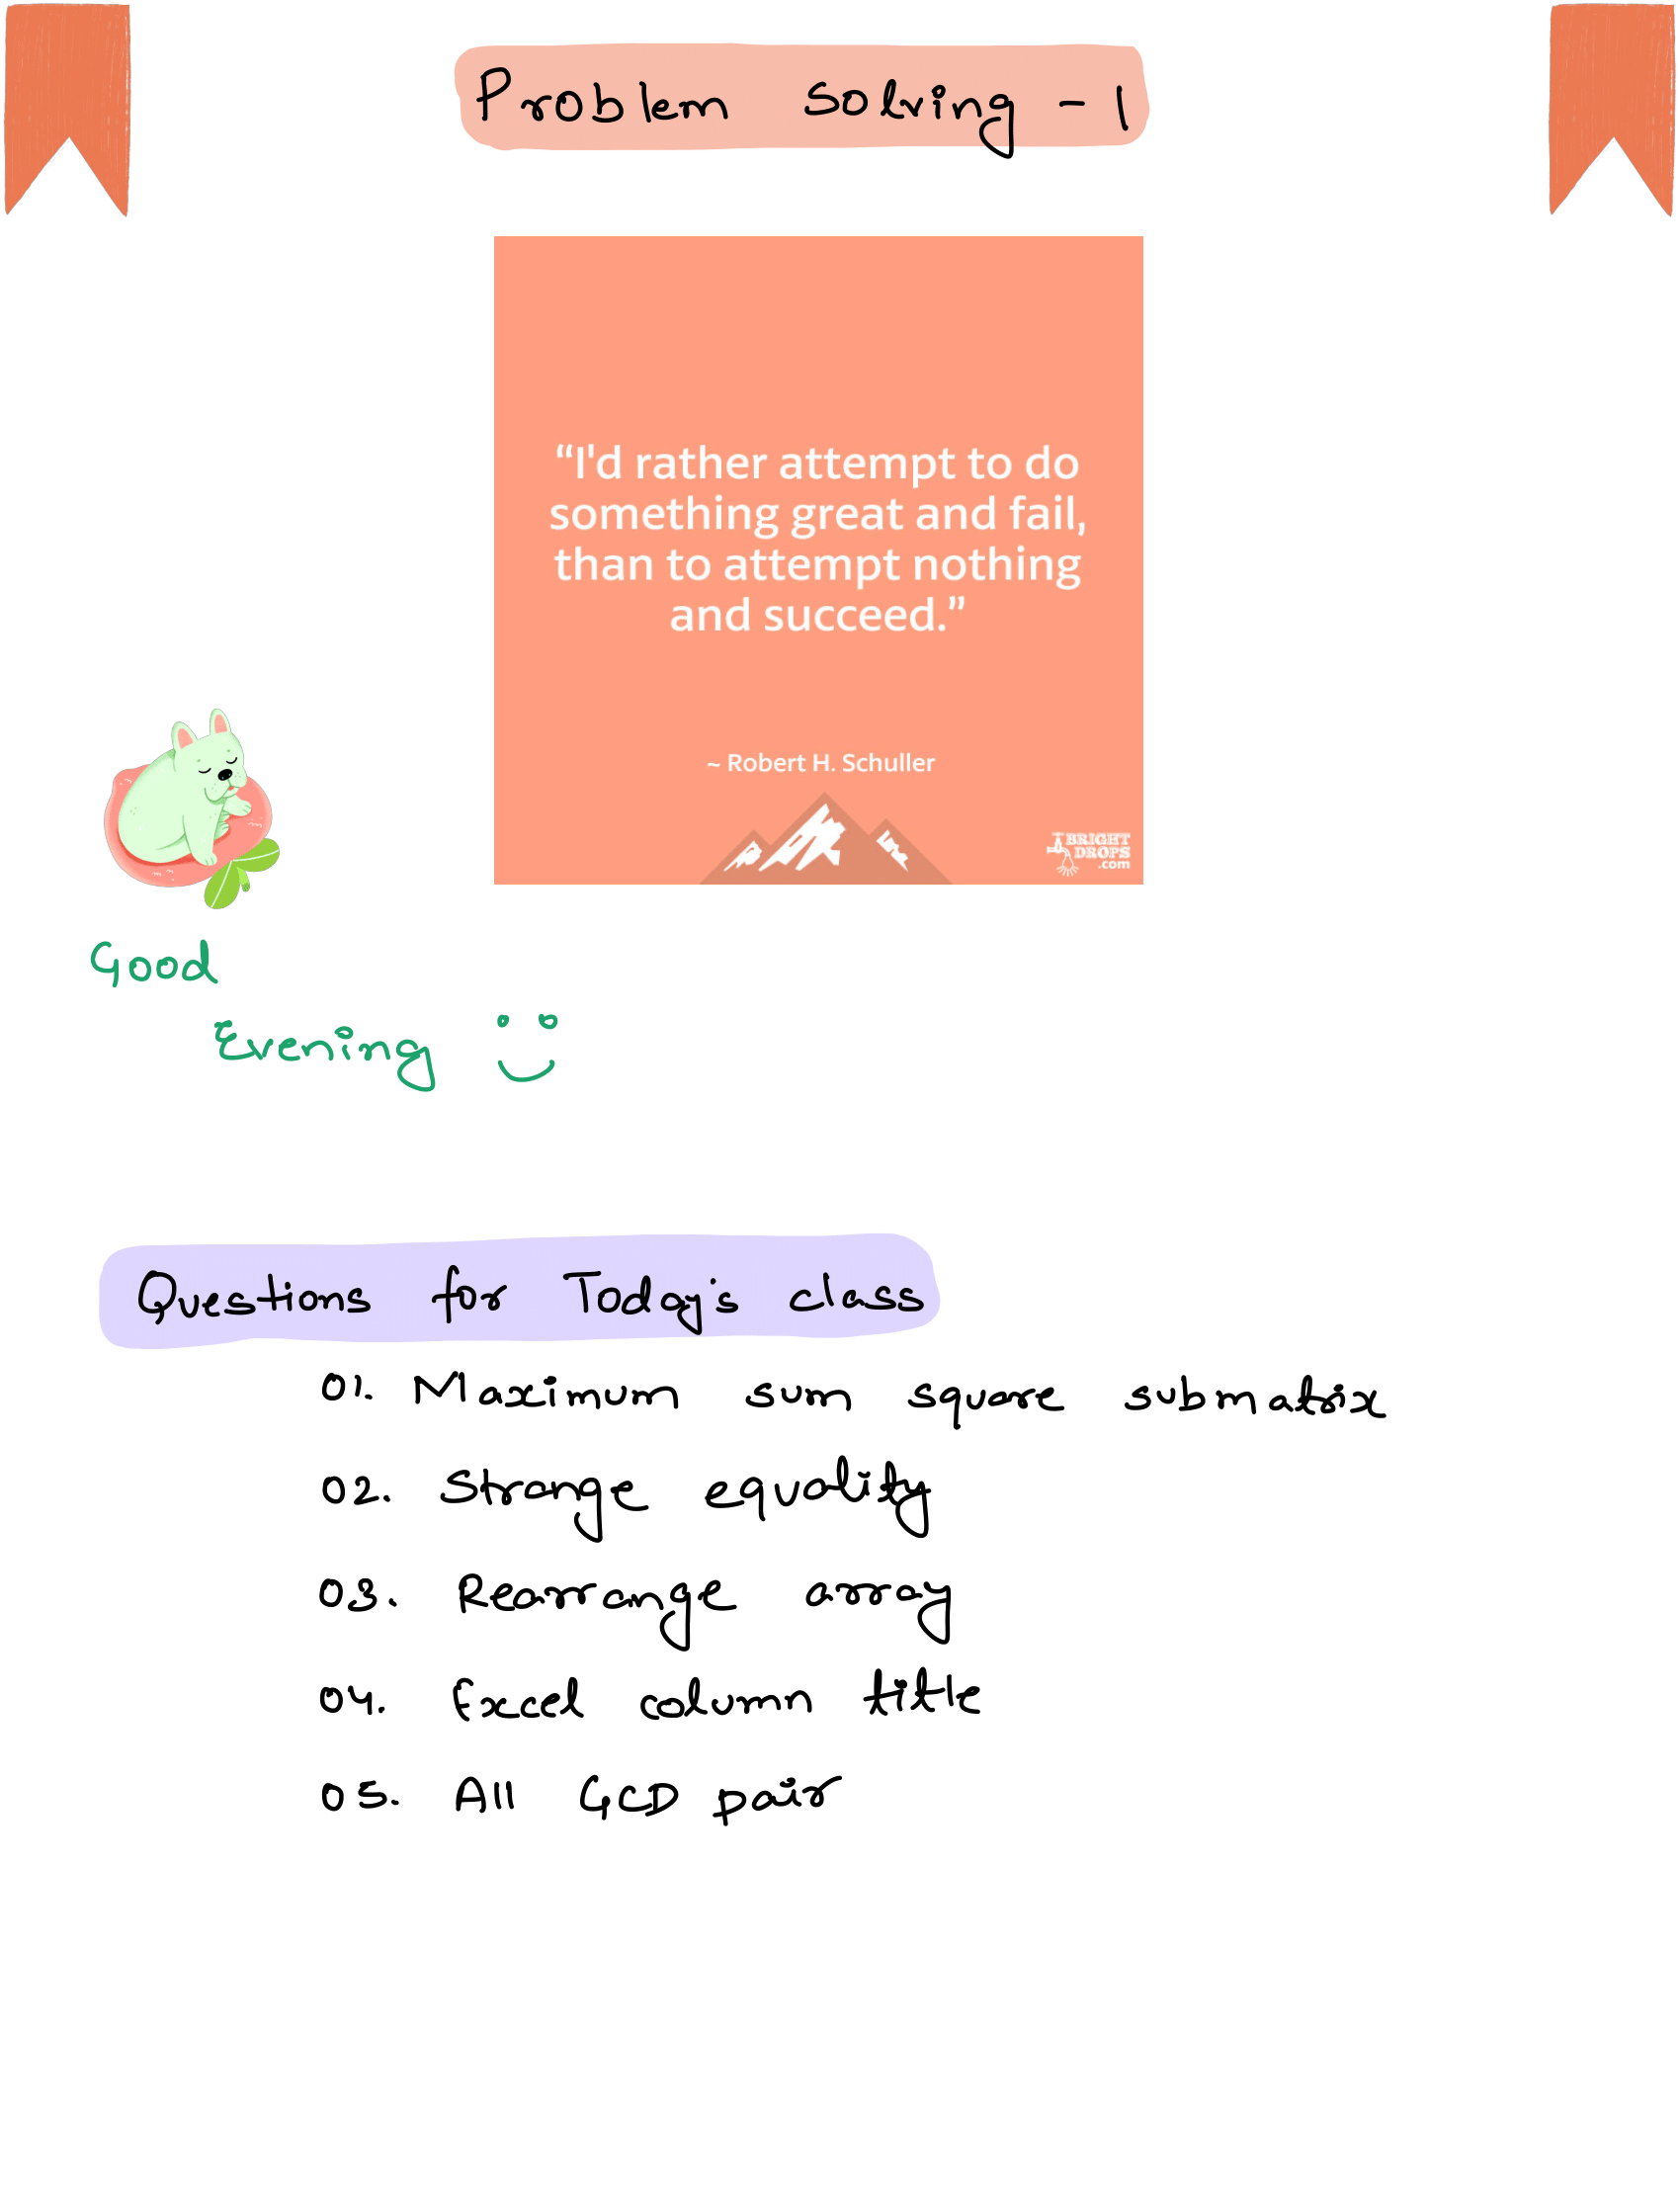 Problem Solving - 1
“I'd rather attempt to do
something great and fail,
than to attempt nothing
and succeed.”
~ Robert H. Schuller
BRIGHT
DROPS
.com
Good
Evening
Questions for Today's class
01. Maximum sum square submatrix
02. Strange equality
03. Rearrange array
04. Excel column title
05. All GCD pair